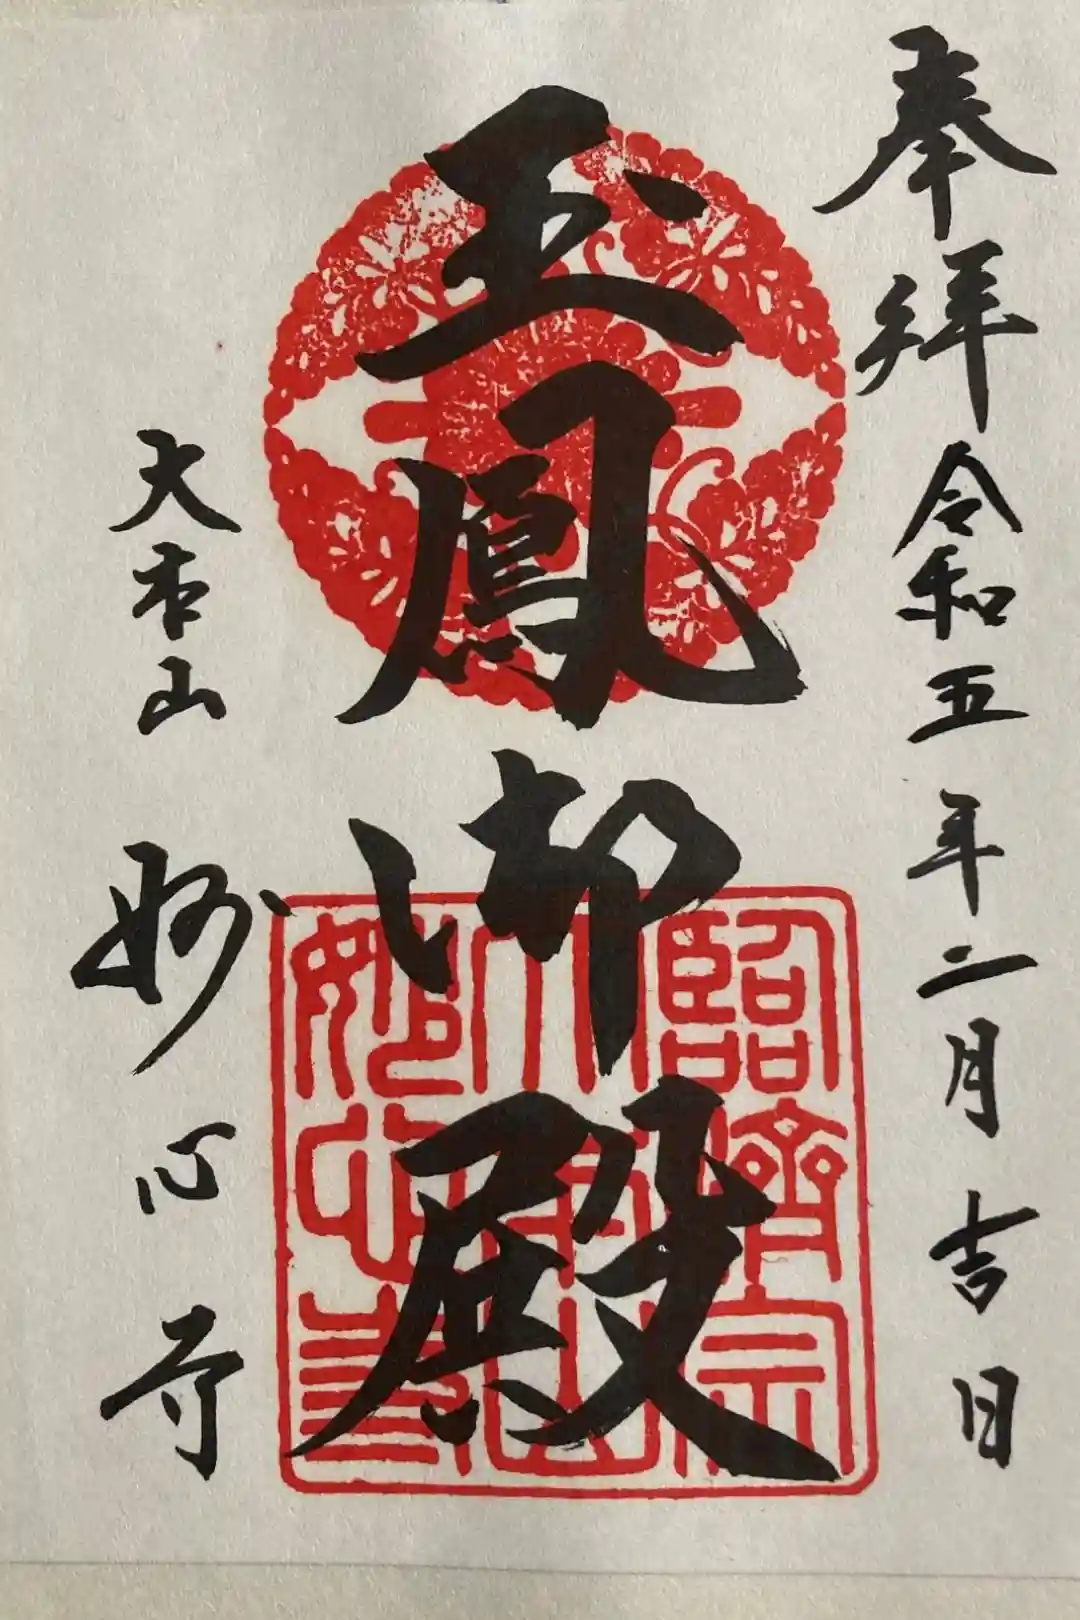 奉拝 令和五年二月吉日
玉鳳御殿
大本山 妙心寺
臨済宗
大本山
妙心寺